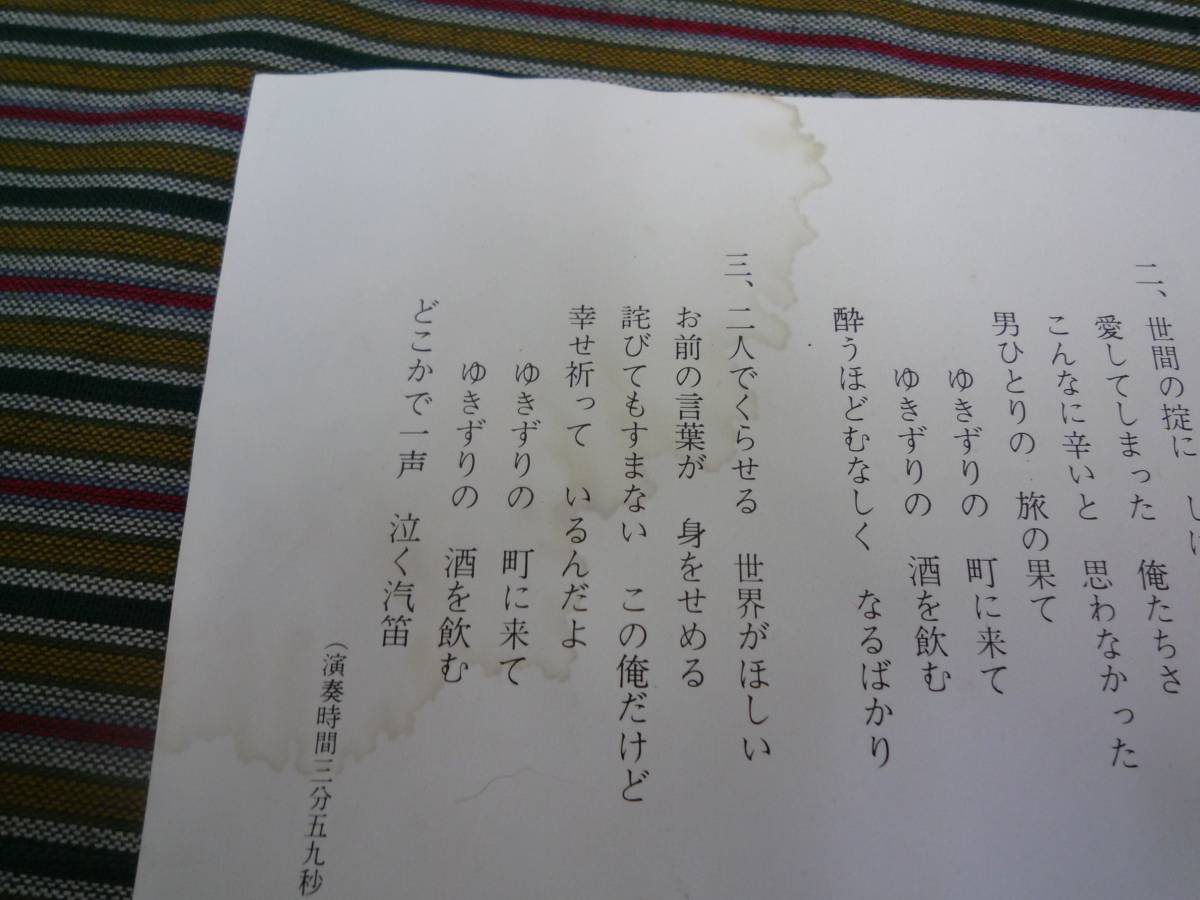 二、世間の掟に
愛してしまった 俺たちさ
こんなに辛いと 思わなかった
男ひとりの 旅の果て
ゆきずりの 町に来て
ゆきずりの 酒を飲む
酔うほどむなしく なるばかり
三、二人でくらせる 世界がほしい
お前の言葉が 身をせめる
詫びてもすまない この俺だけど
幸せ祈って いるんだよ
ゆきずりの 町に来て
ゆきずりの 酒を飲む
どこかで一声 泣く汽笛
（演奏時間三分五九秒